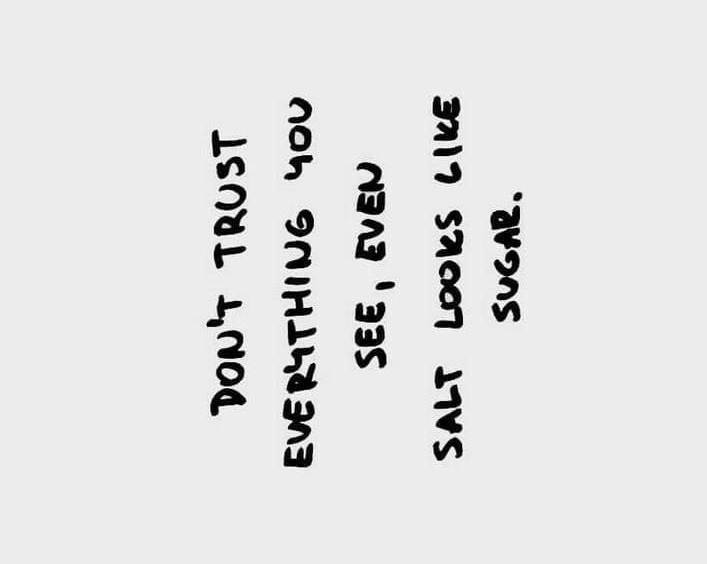 DON'T TRUST
EVERYTHING YOU
SEE, EVEN
SALT LOOKS LIKE
SUGAR.